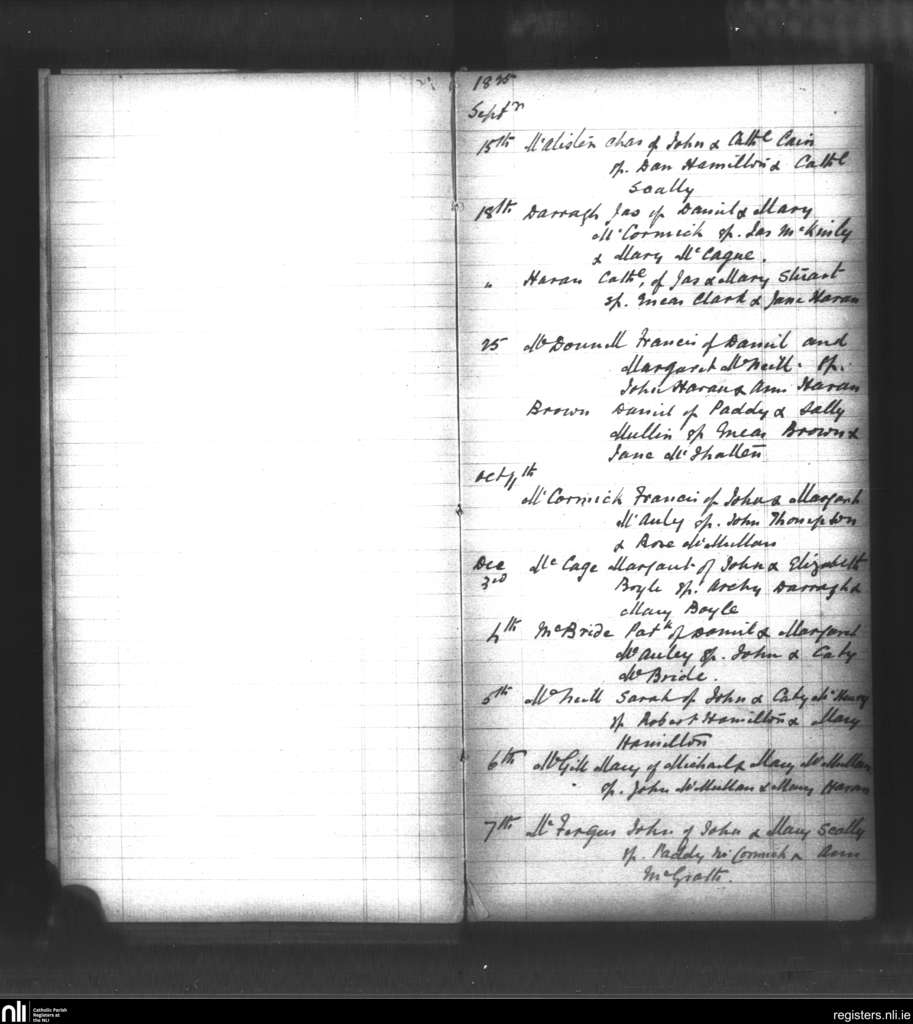 1825
Septr
15th McAlister Chas of John & Cathe Cain
sp. Dan Hamilton & Cathe
Scally
18th Darragh Jas of Daniel & Mary
McCormick sp. Jas McKinly
& Mary McCague.
" Haran Cathe, of Jas & Mary Stuart
sp. Eneas Clark & Jane Haran
25 McDonnell Francis of Daniel and
Margaret McNeill. Sp.
John Haran & Ann Haran
Brown Daniel of Paddy & Sally
Mullin sp Eneas Brown &
Jane
Oct 4th
McCormick Francis of John & Margaret
McAuley sp. John Thompson
& Rose McMullan
Dec McCage Margaret of John & Elizabeth
3rd Boyle sp. Archy Darragh &
Mary Boyle
4th McBride Patk of Daniel & Margaret
McAuley sp. John & Caty
McBride.
5th McNeill Sarah of John & Caty McHenry
sp Robert Hamilton & Mary
Hamilton
6th McGill Mary of Michael & Mary McMullan
sp. John McMullan & Mary Haran
7th McFergus John of John & Mary Scally
sp. Paddy McCormick & Ann
McGrath.
nli
Catholic Parish
Registers at
the NLI
registers.nli.ie